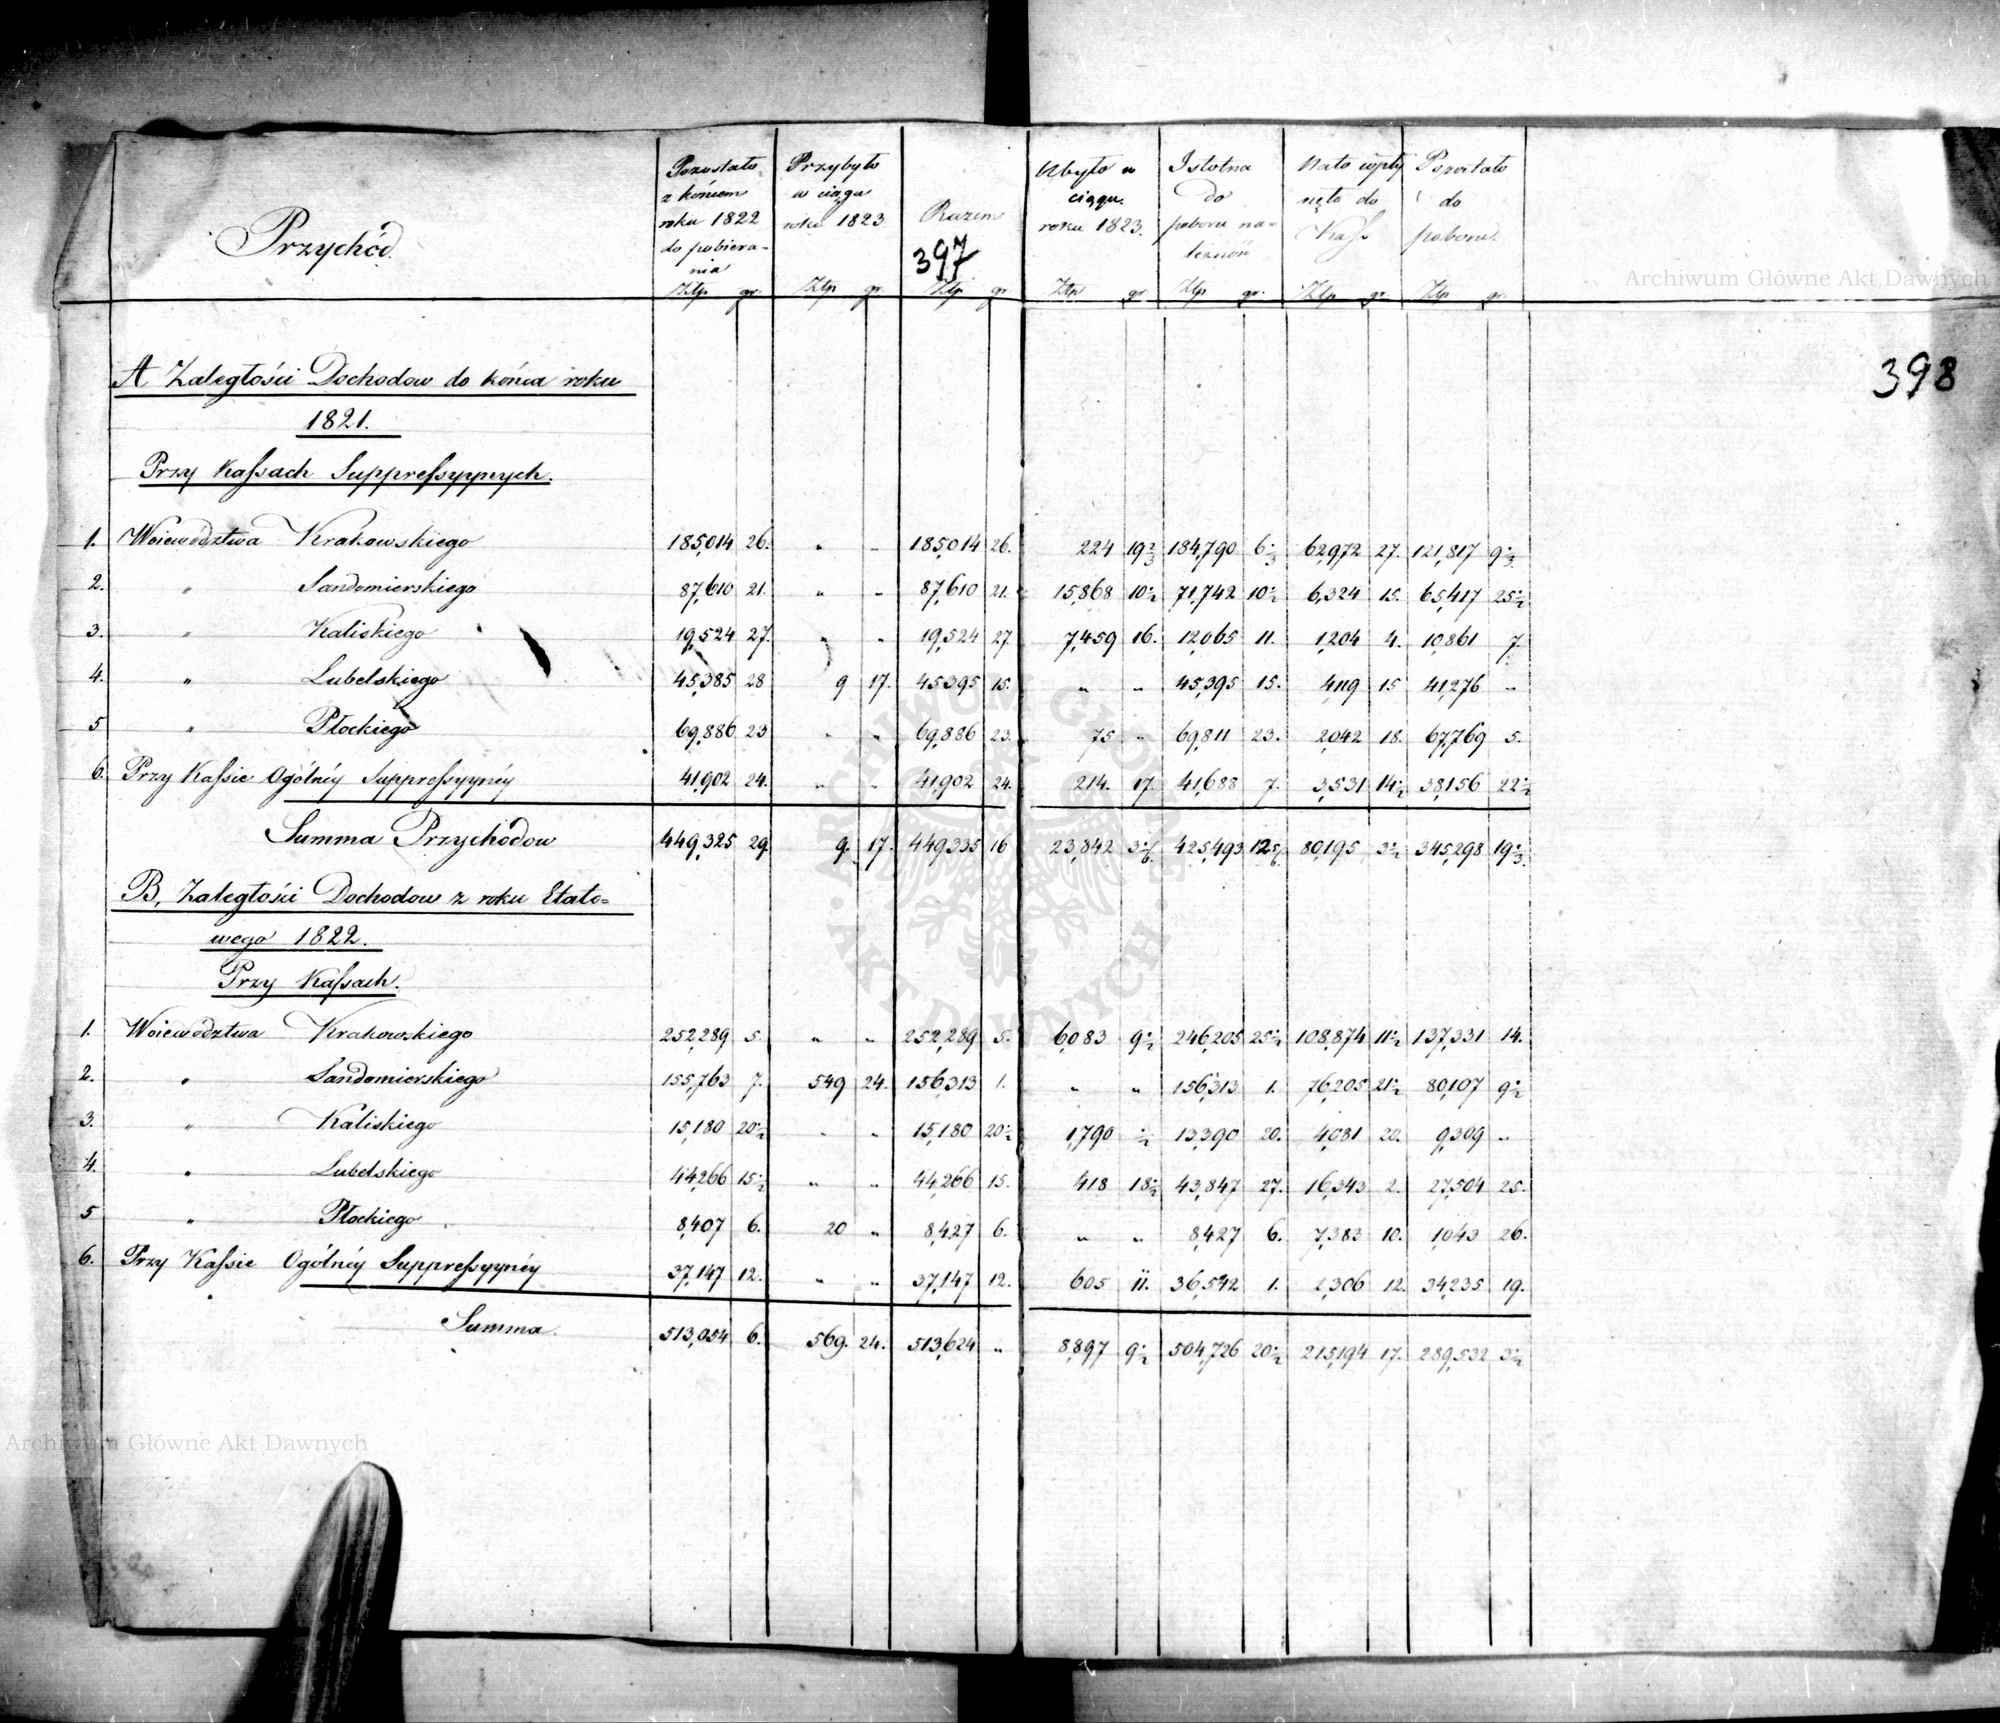 Przychód.
Pozostało z końcem roku 1822 do pobierania Złp gr.
Przybyło w ciągu roku 1823 Złp gr.
Razem Złp gr.
397
Ubyło w ciągu roku 1823. Złp gr.
Istotna do poboru należność Złp gr.
Na to wpłynęło do Kass Złp gr.
Pozostało do poboru. Złp gr.
398
A Zaległości Dochodow do końca roku
1821.
Przy Kassach Suppressyynych.
1. Woiewództwa Krakowskiego 185,014 26. " " 185,014 26. 224 19 2/3 184,790 6 1/3 62,972 27. 121,817 9 1/3
2. " Sandomierskiego 87,610 21. " " 87,610 21. 15,868 10 1/2 71,742 10 1/2 6,324 15. 65,417 25 1/2
3. " Kaliskiego 19,524 27. " " 19,524 27 7,459 16. 12,065 11. 1,204 4. 10,861 7.
4. " Lubelskiego 45,385 28 9 17. 45,395 15. " " 45,395 15. 4,119 15 41,276 "
5 " Płockiego 69,886 23 " " 69,886 23. 75 " 69,811 23. 2,042 18. 67,769 5.
6. Przy Kassie Ogólnéy Suppressyynéy 41,902 24. " " 41,902 24. 214. 17. 41,688 7. 3,531 14 1/2 38,156 22 1/2
Summa Przychódow 449,325 29 9. 17. 449,335 16 23,842 3 1/6 425,493 12 5/6 80,195 3 1/2 345,298 19 1/3
B. Zaległości Dochodow z roku Etato=
wego 1822.
Przy Kassach.
1. Woiewództwa Krakowskiego 252,289 5. " " 252,289 5. 6,083 9 1/2 246,205 25 1/2 108,874 11 1/2 137,331 14.
2. " Sandomierskiego 155,763 7. 549 24. 156,313 1. " " 156,313 1. 76,205 21 1/2 80,107 9 1/2
3. " Kaliskiego 15,180 20 1/2 " " 15,180 20 1/2 1,790 1/2 13,390 20. 4,081 20. 9,309 "
4. " Lubelskiego 44,266 15 1/2 " " 44,266 15. 418 18 1/2 43,847 27. 16,343 2. 27,504 25.
5 " Płockiego 8,407 6. 20 " 8,427 6. " " 8,427 6. 7,383 10. 1,043 26.
6. Przy Kassie Ogólnéy Suppressyynéy 37,147 12. " " 37,147 12. 605 11. 36,542 1. 2,306 12. 34,235 19.
Summa. 513,054 6. 569. 24. 513,624 " 8,897 9 1/2 504,726 20 1/2 215,194 17. 289,532 3 1/2
Archiwum Główne Akt Dawnych
Archiwum Główne Akt Dawnych
ARCHIWUM GŁÓWNE · AKT DAWNYCH ·